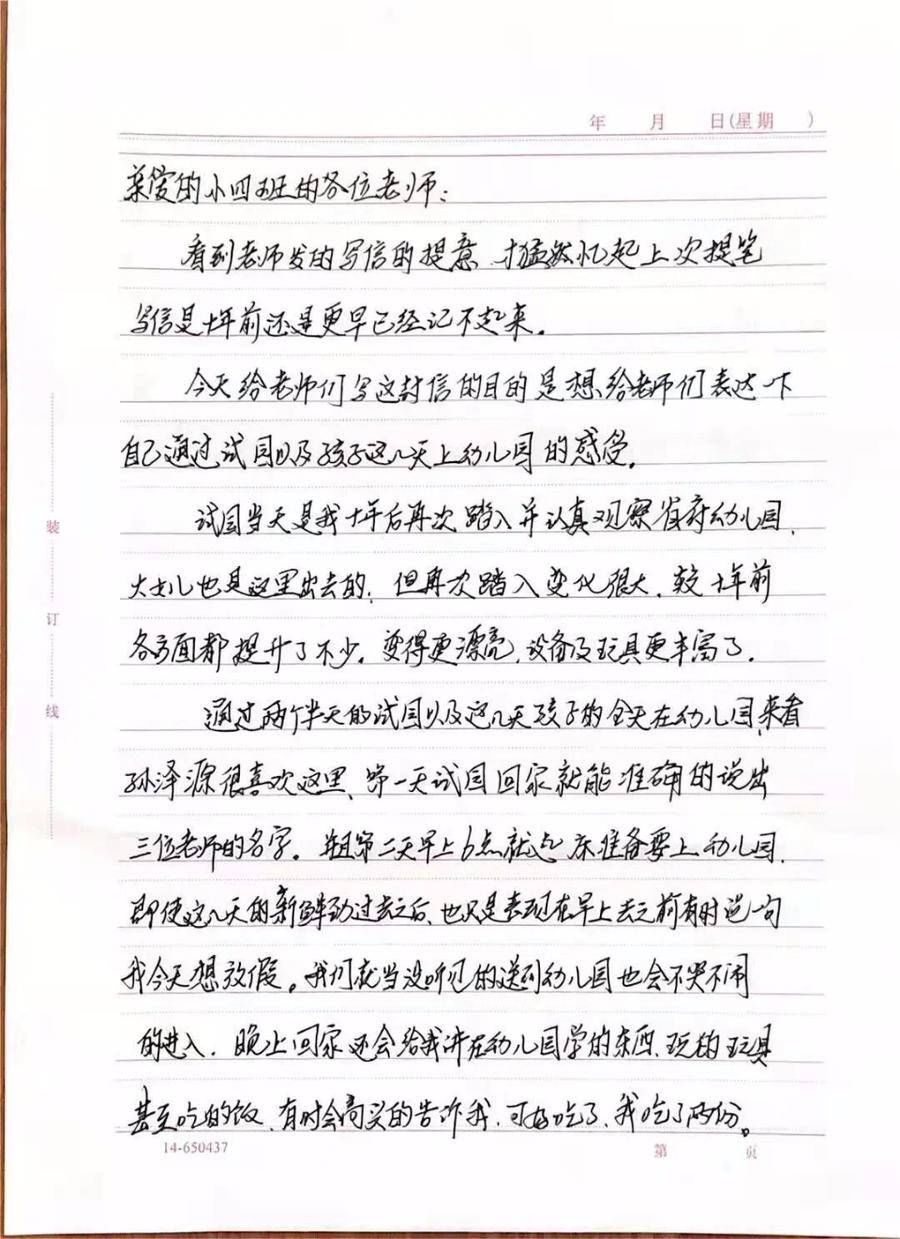 年 月 日(星期 )
亲爱的小四班的各位老师:
看到老师发的写信的提意,才猛然忆起上次提笔
写信是十年前还是更早已经记不起来。
今天给老师们写这封信的目的是想给老师们表达一下
自己通过试园以及孩子这几天上幼儿园的感受。
试园当天是我十年后再次踏入并认真观察省府幼儿园,
大女儿也是这里出去的,但再次踏入变化很大,较十年前
各方面都提升了不少。变得更漂亮,设备及玩具更丰富了。
通过两个半天的试园以及这几天孩子的全天在幼儿园,来看
孙泽源很喜欢这里、第一天试园回家就能准确的说出
三位老师的名字。并且第二天早上6点就起床准备要上幼儿园,
即使这几天的新鲜劲过去之后,也只是表现在早上去之前有时说一句
我今天想放假。我们就当没听见的送到幼儿园也会不哭不闹
的进入,晚上回家还会给我讲在幼儿园学的东西、玩的玩具
甚至吃的饭,有时会高兴的告诉我,可好吃了,我吃了两份。
装
订
线
14-650437
第 页